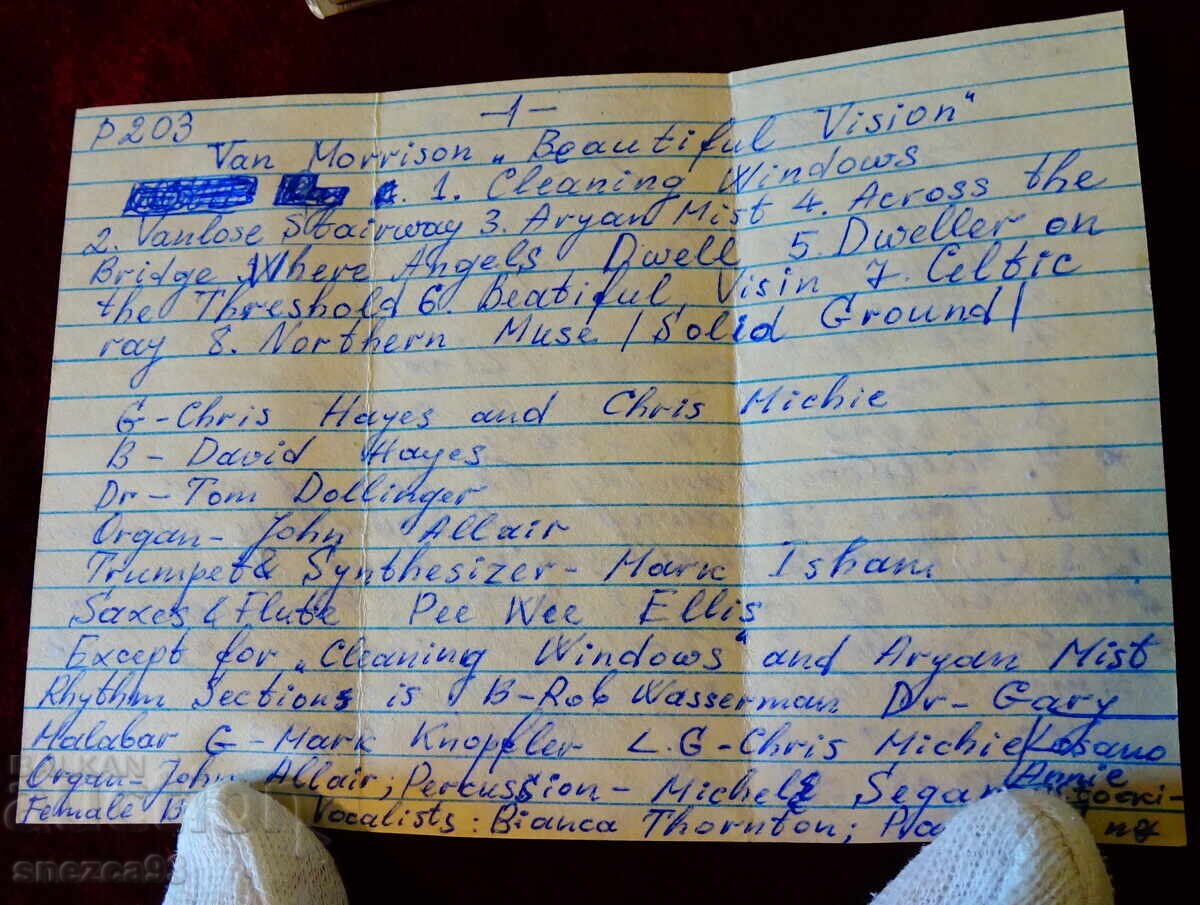 p 203 -1-
Van Morrison „Beautiful Vision"
1. Cleaning Windows
2. Vanlose Stairway 3. Aryan Mist 4. Across the
Bridge Where Angels Dwell 5. Dweller on
the Threshold 6. Beatiful Visin 7. Celtic
ray 8. Northern Muse /Solid Ground/
G-Chris Hayes and Chris Michie
B- David Hayes
Dr-Tom Dollinger
Organ- John Allair
Trumpet& Synthesizer- Mark Isham
Saxes & Flute Pee Wee Ellis
Except for „Cleaning Windows" and Aryan Mist
Rhythm Sections is B-Rob Wasserman Dr- Gary
Malabar G-Mark Knopfler L.G-Chris Michie
Organ- John Allair; Percussion- Michele Segan Annie
Female Vocalists: Bianca Thornton;
BALKAN
auction
snezca93